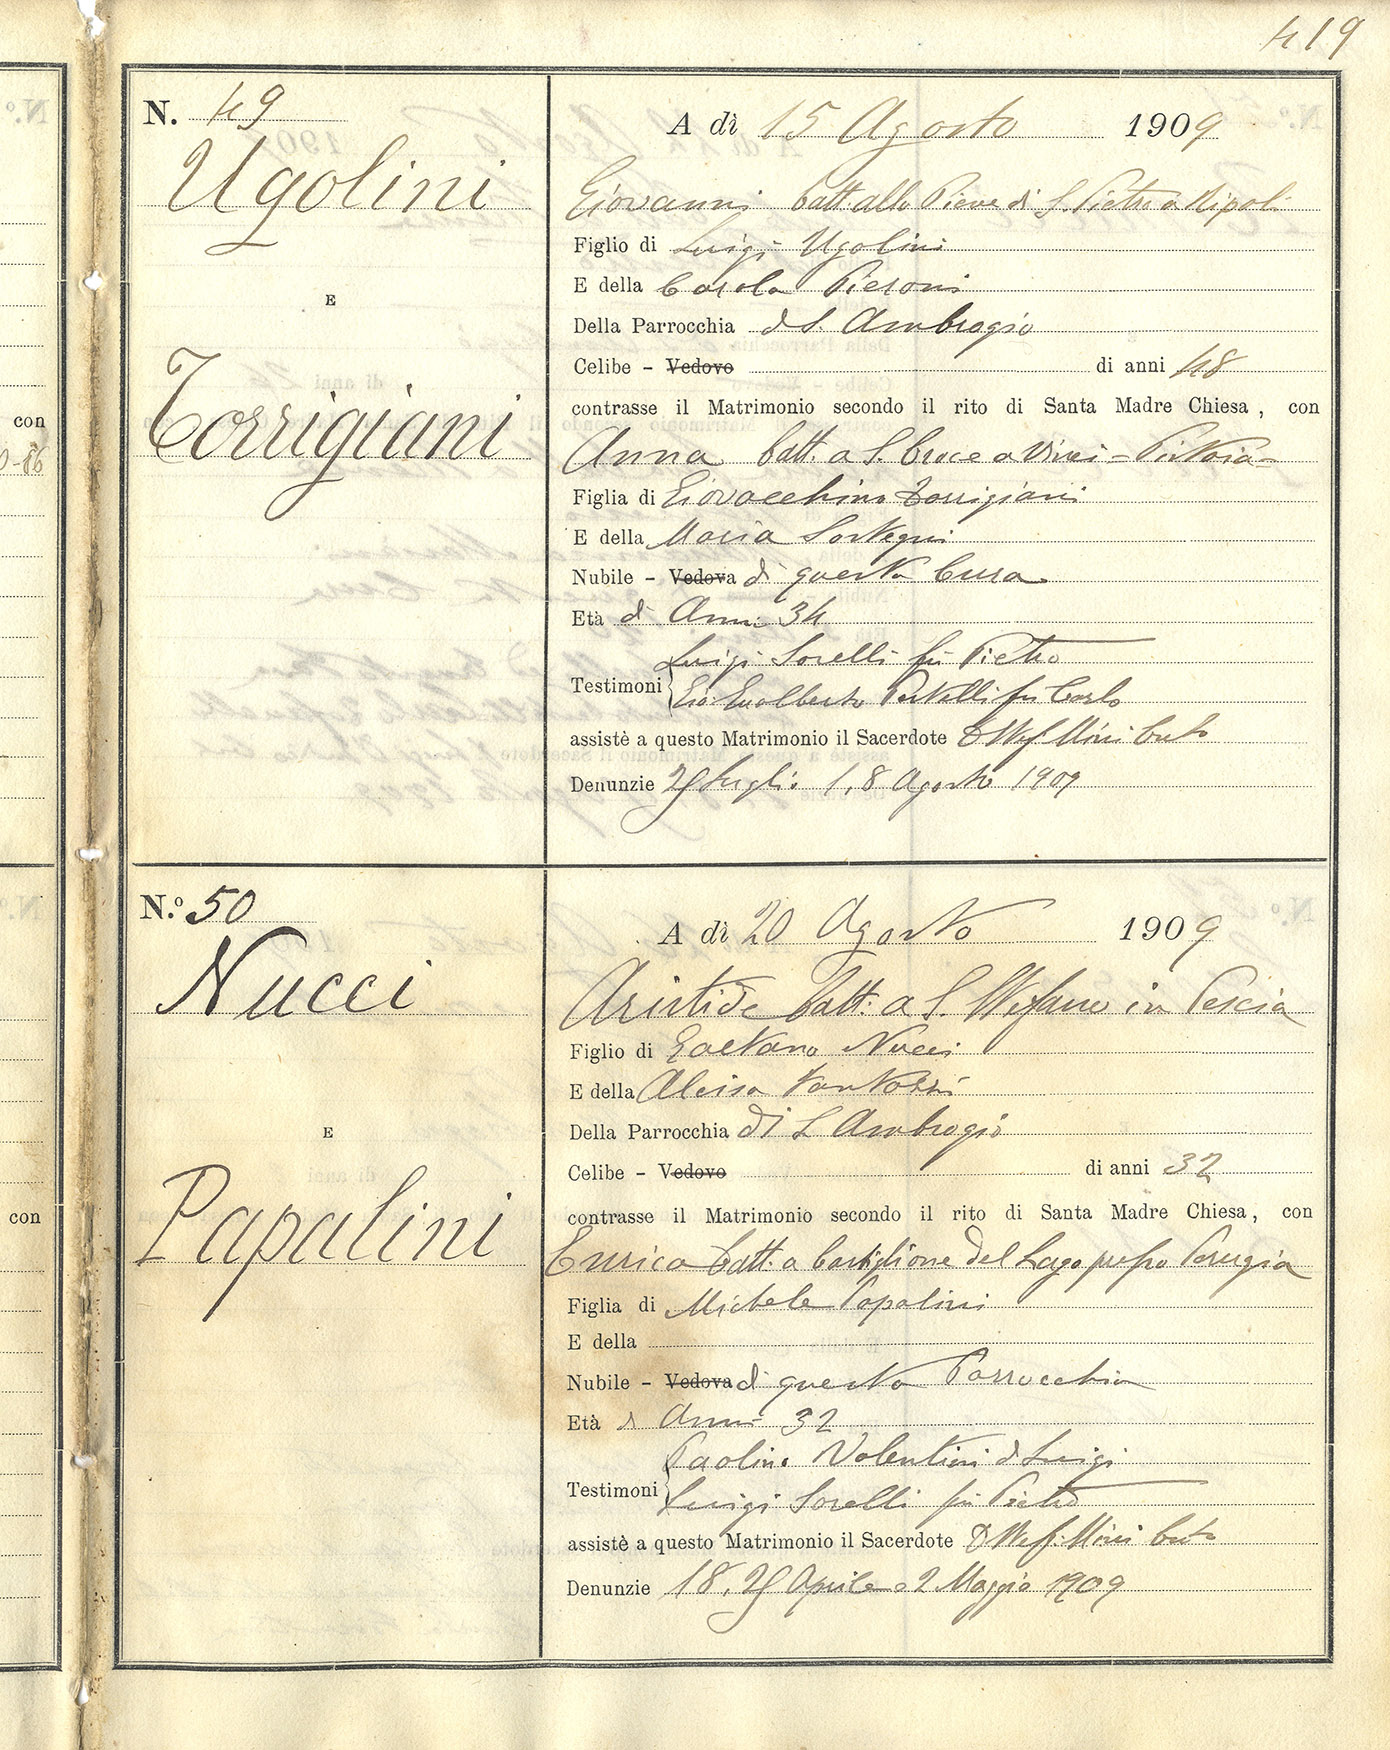 419
N. 49
Ugolini
E
Torrigiani
A dì 15 Agosto 1909
Giovanni batt alla Pieve di S. Pietro a Ripoli
Figlio di Luigi Ugolini
E della Carola Pieroni
Della Parrocchia di S. Ambrogio
Celibe - Vedovo di anni 48
contrasse il Matrimonio secondo il rito di Santa Madre Chiesa, con
Anna batt. a S. Croce a Vinci = Pistoia =
Figlia di Giovacchino Torrigiani
E della Maria Sostegni
Nubile - Vedova di questa Cura
Età di Anni 34
Luigi Sorelli fu Pietro
Testimoni Gio: Gualberto fu Carlo
assistè a questo Matrimonio il Sacerdote D Stef. Mini
Denunzie 25 Luglio 1, 8 Agosto 1909
N.º 50
Nucci
E
Papalini
A dì 20 Agosto 1909
Aristide batt: a S. Stefano in Pescia
Figlio di Gaetano Nucci
E della Vantozzi
Della Parrocchia di S. Ambrogio
Celibe - Vedovo di anni 32
contrasse il Matrimonio secondo il rito di Santa Madre Chiesa, con
Enrica batt. a Castiglione del Lago presso Perugia
Figlia di Michele Papalini
E della
Nubile - Vedova di questa Parrocchia
Età di Anni 32
Paolino Valentini di Luigi
Testimoni Luigi Sorelli fu Pietro
assistè a questo Matrimonio il Sacerdote D Stef. Mini
Denunzie 18, 25 Aprile e 2 Maggio 1909
con
con